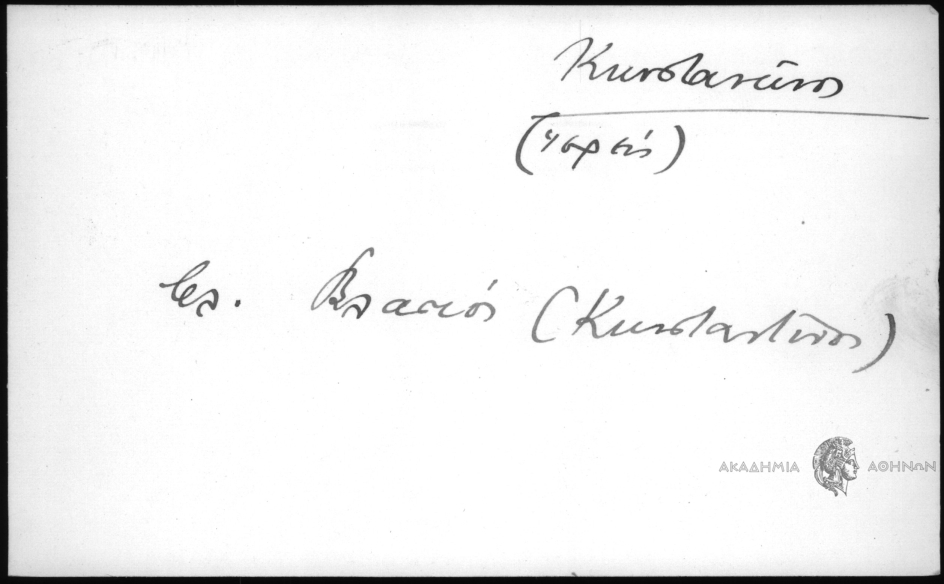 Κωνσταντίνος
βλ. Βλασιός (Κωνσταντίνος)
ΑΚΑΔΗΜΙΑ ΑΘΗΝΩΝ